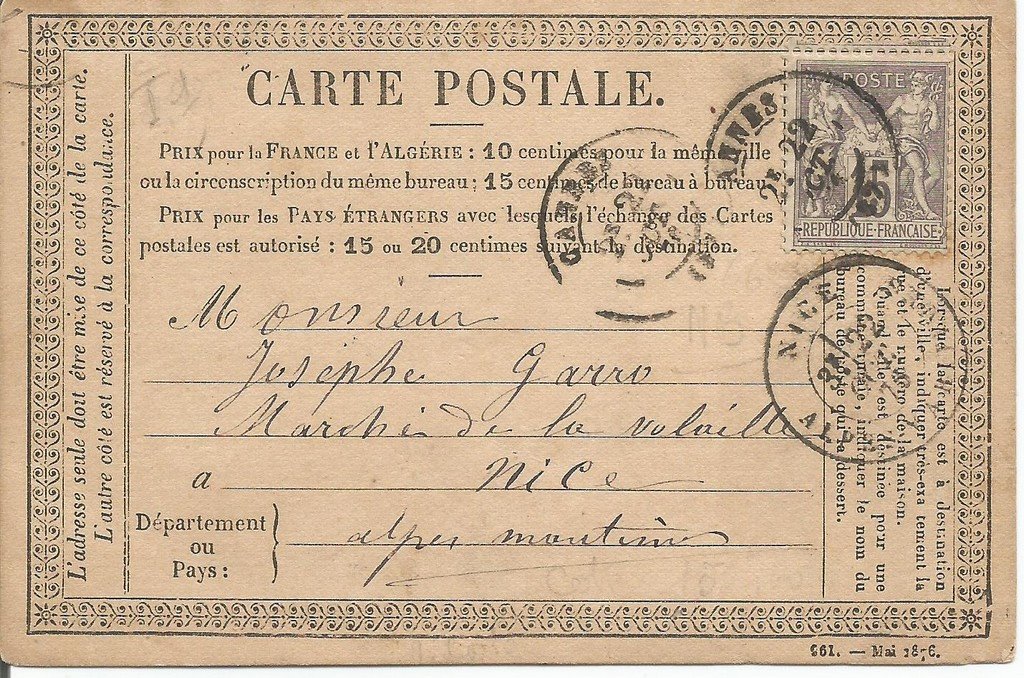 CARTE POSTALE.
PRIX pour la FRANCE et l'ALGÉRIE : 10 centimes pour la même ville
ou la circonscription du même bureau ; 15 centimes de bureau à bureau.
PRIX pour les PAYS ÉTRANGERS avec lesquels l'échange des Cartes
postales est autorisé : 15 ou 20 centimes suivant la destination.
Monsieur
Josèphe Garro
Marché de la volaille
a Nice
Département
ou
Pays :
alpes maritimes
L'adresse seule doit être mise de ce côté de la carte.
L'autre côté est réservé à la correspondance.
POSTE
15
REPUBLIQUE-FRANCAISE
CANNES
CANNES
2E
22
OCT.
NICE
ALPES
Lorsque la carte est à destination
d'une ville, indiquer très-exactement la
rue et le numéro de la maison.
Quand elle est destinée pour une
commune rurale, indiquer le nom du
bureau de poste qui la dessert.
661. — Mai 1876.